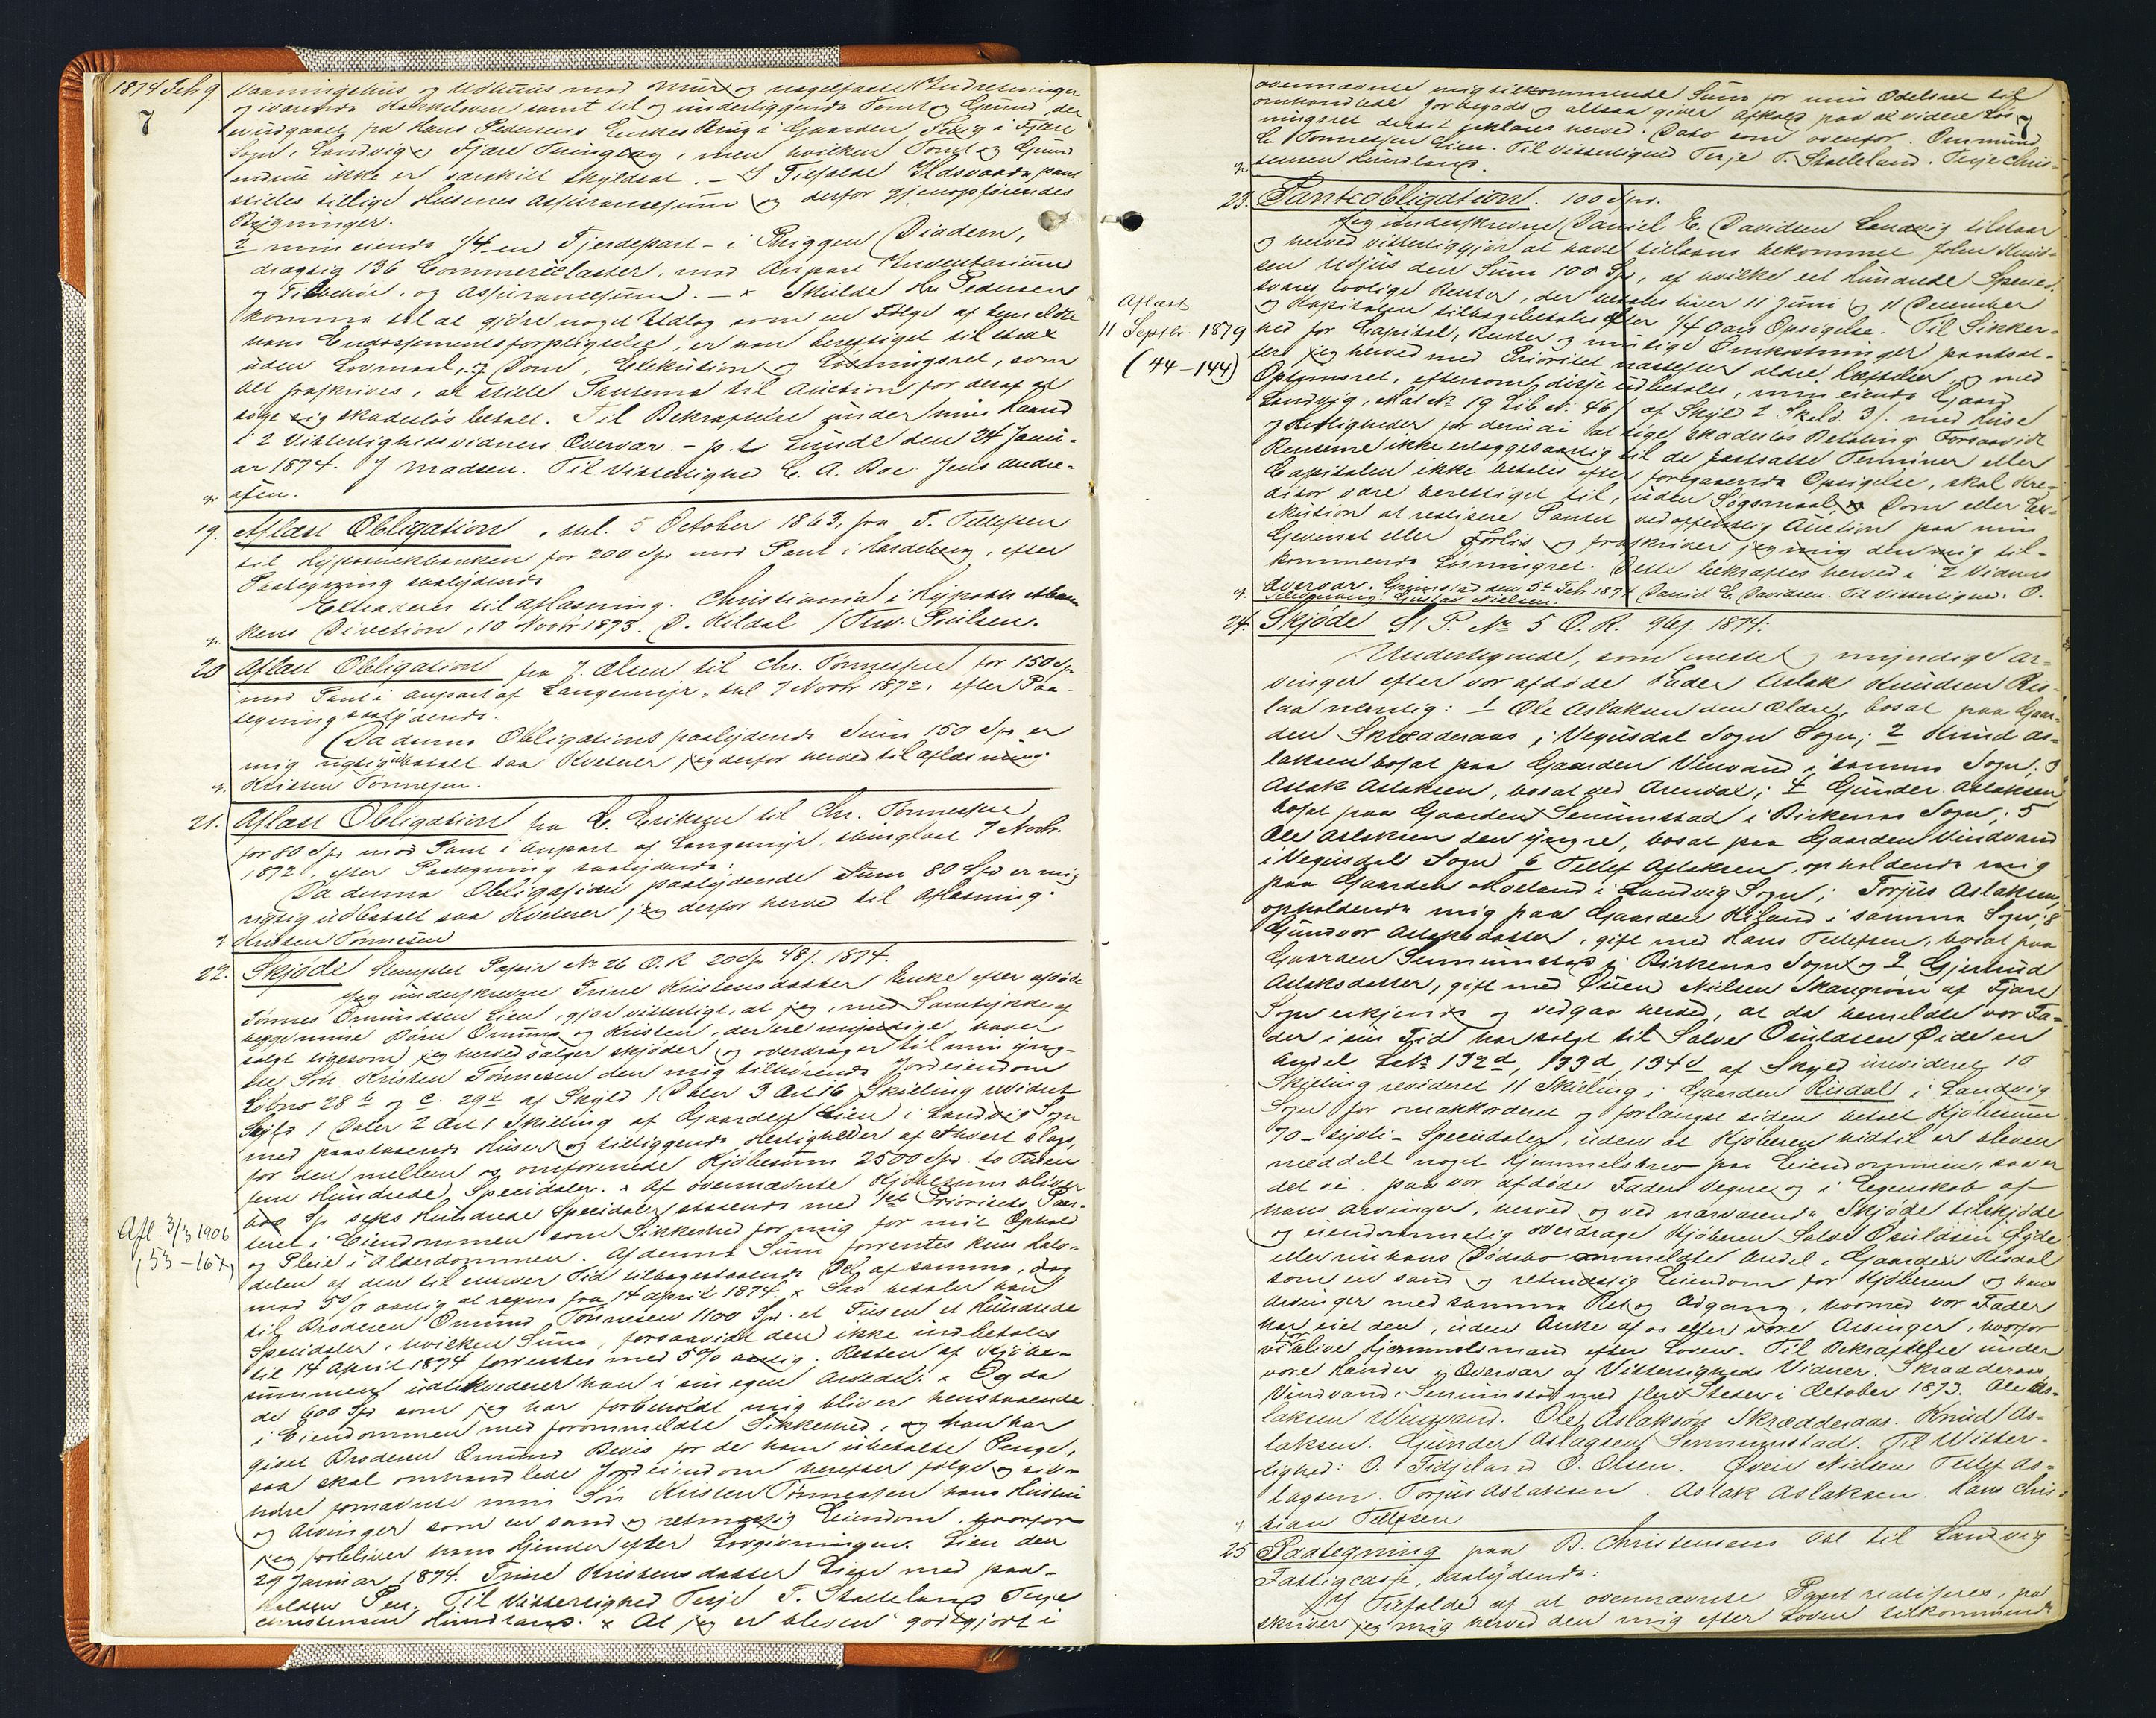 1874 Feb 9.
7
Vaaningshus og Udhuus med Muur og nagelfaste Indretninger
og iværende Kakkelovne samt til og underliggende Tomt og Grund, der
er udgaaet fra Hans Pedersens Enkes Brug i Gaarden Sevig i Fjære
Sogn, Landvig & Fjære Thinglag, men hvilken Tomt og Grund
endnu ikke er særskilt skyldsat. – I Tilfælde Ildsvaade pant
stilles tillige Husenes Assurancesum og derfor gjenopførendes
Bygninger.
2 min eiende 1/4 en Fjerdepart – i Briggen Diadem,
drægtig 136 Commercelæster, med Anpart Inventarium
og Tilbehør, og Assurancesum. – × Skulde Hr Pedersen
komme til at gjøre noget Udlag som en Følge af bemeldte
hans Endossementsforpligtelse, er han berettiget til strax
uden Lovmaal, og Dom, Exekution og Løsningsret, som
alt fraskrives, at stille Panterne til Auction for deraf at
søge sig skadesløs betalt. Til Bekræftelse under min Haand
i 2 Vitterlighedsvidners Overvær. – p. t. Lunde den 24 Janu-
ar 1874. J Madsen. Til Vitterlighed C. A. Boe. Jens Andre-
asen.
19. Aflæst Obligation, thl. 5 October 1863, fra T. Tellefsen
til Hypothekbanken for 200 Spd mod Pant i Hardeberg, efter
Paategning saalydende
Extraderes til Aflæsning. Christiania i Hypothekban
kens Direction, 10 Novbr 1873. D. Kildal / Thv. Poulsen.
20 Aflæst Obligation fra J. Olsen til Chr. Tønnessen for 150 Spd
mod Pant i anpart af Langemyr, thl 7 Novbr 1872, efter Paa-
tegning saalydende.
Da denne Obligations paalydende Sum 150 Spd er
mig rigtig udbetalt saa kvitterer jeg derfor herved til aflæsning.
Kristen Tønnesen.
21. Aflæst Obligation fra C. Eriksen til Chr. Tønnessen
for 80 Spd mod Pant i Anpart af Langemyr, thinglæst 7 Novbr.
1872, efter Paategning saalydende:
Da denne Obligasion paalydende Sum 80 Spd er mig
rigtig udbetalt saa kvitterer jeg derfor herved til aflæsning.
Kristen Tønnesen
22. Skjøde Stemplet Papir No 26 O. R 20 Spd 48 s. 1874.
Jeg underskrevne Trine Kristensdatter Enke efter afdøde
Tønnes Omundsen Lien, gjør vitterligt, at jeg, med Samtykke af
begge mine Børn Omund og Kristen, der ere myndige, haver
solgt ligesom jeg herved sælger skjøder og overdrager til min yng-
ste Søn Kristen Tønnesen den mig tilhørende Jordeiendom
Løbno 28 b og c. 29 d af Skyld 1 Daler 3 Ort 16 Skilling revideret
Skyld 1 Daler 2 Ort 1 Skilling af Gaarden Lien i Landvig Sogn
med paastaaende Huse og tilliggende Herligheder af ethvert slags,
for den mellem os omforenede Kjøbesum 2500 Spd. to Tusen
fem Hundrede Speciedaler. × Af ovennævnte Kjøbesum bliver
600 Sp seks Hundrede Speciedaler staaende med 1ste Prioritets Pan-
teret i Eiendommen som Sikkerhed for mig for mit Ophold
og Pleie i Alderdommen. Af denne Sum forrentes kun Halv-
delen af den til enhver Tid tilbagestaaende Del af samme, dog
med 5% aarlig at regne fra 14 april 1874. × Saa betaler han
til Broderen Omund Tønnesen 1100 Spd. et Tusen et Hundrede
Speciedaler, hvilken Sum, forsaavidt den ikke indbetales
til 14 April 1874 forrentes med 5% aarlig. Resten af Kjøbe-
summen udlikviderer han i sin egen Arvedel. × Og da
de 600 Spd som jeg har forbeholdt mig bliver henstaaende
i Eiendommen med forommeldte Sikkerhed, og han har
givet Broderen Omund Bevis for de ham ubetalte Penge,
saa skal omhandlede Jordeiendom herefter følge og til-
høre fornævnte min Søn Kristen Tønnessen hans Hustru
og Arvinger som en sand og retmæssig Eiendom, hvorfor
jeg forbliver hans Hjemler efter Lovgivningen. Lien den
29 Januar 1874. Trine Kristensdatter Lien med paa-
holden Pen. Til Vitterlighed Terje T. Stalleland Terje
Christensen Hundland. × At jeg er bleven godtgjort i
Afl. 3/3 1906
(53 – 167)
ovennævnte mig tilkommende Sum for min Odelsret til
omhandlede Jordegods og altsaa giver Afkald paa al videre Løs
ningsret dertil erklæres herved. Dato som ovenfor. Ommund
C Tønnessen Lien. Til Vitterlighed Terje T. Stalleland. Terje Chris-
tensen Hundland.
23. Panteobligation. 100 Spd.
Jeg underskrevne Daniel E. Davidsen Landvig tilstaar
og herved vitterliggjør at have tillaans bekommet John Knud-
sen Udjus den Sum 100 Sp, af hvilke eet Hundrede Specied.
svares lovlige Renter, der betales hver 11 Juni og 11 December
og Kapitalen tilbagebetales efter 1/4 Aars Opsigelse. Til Sikker-
hed for Capital, Renter og mulige Omkostninger pantsæt-
ter jeg herved med Prioritet næstefter ældre Hæftelser, og med
Optrinsret, eftersom disse udbetales, min eiende Gaard
Landvig, Mat No 19 Lib No. 46, af Skyld 2 Skild. 3 s. med Huse
og Herligheder for deraf at søge skadesløs Betaling. Forsaavidt
Renterne ikke erlægges aarlig til de fastsatte Terminer eller
Capitalen ikke betales efter foregaaende Opsigelse, skal Kre-
ditor være berettiget til, uden Søgsmaal, Dom eller Ex-
ekution at realisere Pantet ved offentlig Auction paa min
Gevinst eller Forlis og fraskriver jeg mig den mig til-
kommende Løsningret. Dette bekræftes herved i 2 Vidners
Overvær. Grimstad den 5te Feb 1874 Daniel E. Davidsen. Til Vitterlighed: O.
Gustav Nielsen.
Aflæst
11 Septbr. 1879
(44 – 144)
24. Skjøde St P. No 5 O. R. 96 s. 1874.
Undertegnede, som eneste og myndige Ar-
vinger efter vor afdøde Fader Aslak Knudsen Ris-
laa nemlig: 1 Ole Aslaksen den Ældre, bosat paa Gaar-
den Skræderaas i Vegusdal Sogn Sogn; 2 Knud As-
laksen bosat paa Gaarden Vinvand i samme Sogn; 3
Aslak Aslaksen, bosat ved Arendal; 4 Gunder Aslaksen
bosat paa Gaarden Senumstad i Birkenæs Sogn; 5
Ole Aslaksen den yngre, bosat paa Gaarden Vindvand
i Vegusdals Sogn 6 Tellef Aslaksen, opholdende mig
paa Gaarden Moeland i Landvig Sogn; Torjus Aslaksen,
opholdende mig paa Gaarden Riland i samme Sogn; 8
Gundvor Aslaksdatter, gift med Hans Tellefsen, bosat paa
Gaarden Senumstad i Birkenæs Sogn og 9, Gjertrud
Aslaksdatter, gift med Øuen Nielsen Skaugrom af Fjære
Sogn erkjende og vedgaa herved, at da bemeldte vor Fa-
der i sin Tid har solgt til Salve Osuldsen Øide en
Andel Lb No 132 d, 133 d, 134 d af Skyld urevideret 10
Skilling revideret 11 Skilling i Gaarden Risdal i Landvig
Sogn for omakkorderet og forlængst siden betalt Kjøbesum
70 – sytti – Speciedaler, uden at Kjøberen hidtil er bleven
meddelt noget Hjemmelsbrev paa Eiendommen, saa er
det vi, paa vor afdøde Faders Vegne og i Egenskab af
hans Arvinger, herved og ved nærværende Skjøde tilskjøde
og eiendommelig overdrage Kjøberen Salve Osuldsen Øyde
eller nu hans Dødsbo ommeldte Andel i Gaarden Risdal
som en sand og retmæssig Eiendom for Kjøberen og hans
Arvinger med samme Ret og Adgang, hvormed vor Fader
har eiet den, uden Anke af os eller vore Arvinger, hvorfor
vi blive Hjemmelsmænd efter Loven. Til Bekræftelse under
vore Hænder i Overvær af Vitterligheds Vidner. Skrædderaas,
Vindvand, Senumstad med flere Steder i October 1873. Ole As-
laksen Wingvand. Ole Aslaksøn Skrædderaas. Knud As-
laksen. Gunder Aslagsen Sennumstad. Til Witter-
lighed: O. Tidjeland O. Olsen. Øvein Nielsen Tellef As-
lagsen. Torjus Aslaksen. Aslak Aslaksen. Hans Chris-
tian Tellefsen
25 Paategning paa B. Christensens Obl til Landvig
Fattigcasse, saalydende:
I Tilfælde af at ovennævnte Pant realiseres, fra
skriver jeg mig herved den mig efter Loven tilkommende